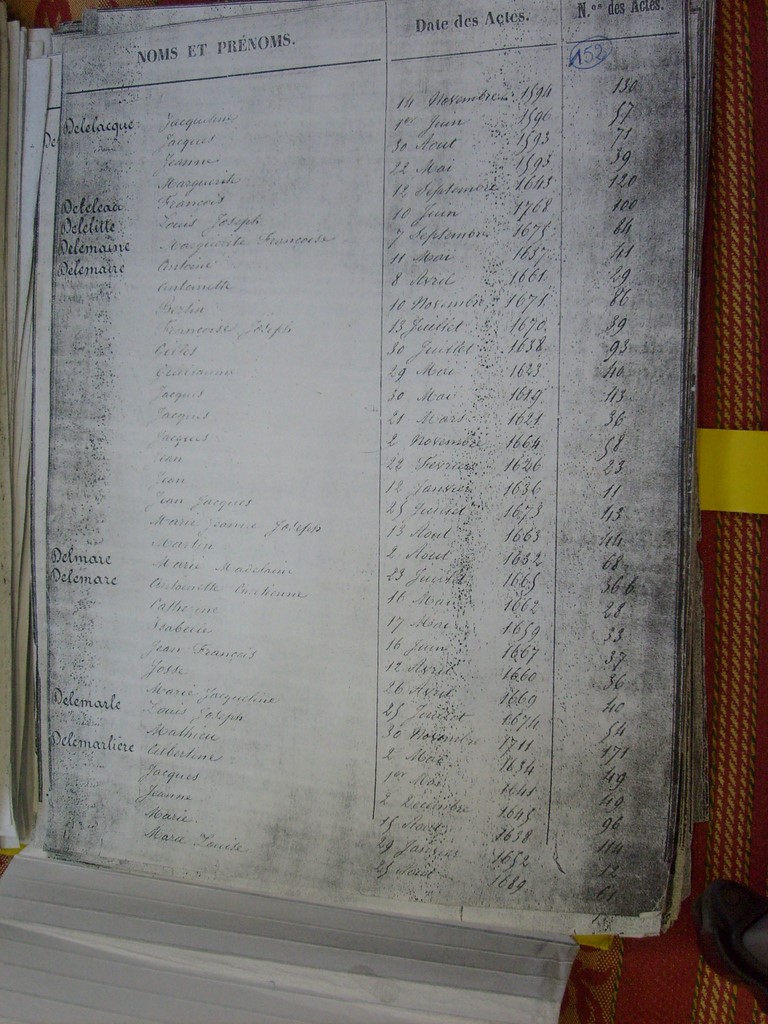 NOMS ET PRÉNOMS. Date des Actes. N.os des Actes.
152
Delelacque Jacqueline 14 Novembre 1594 130
Jacques 1er Juin 1596 57
Jeanne 30 Aout 1593 71
Marguerite 22 Mai 1593 39
Deleleau François 12 Septembre 1643 120
Delelitte Louis Joseph 10 Juin 1768 100
Delemaine Marguerite Françoise 7 Septembre 1675 84
Delemaire Antoine 11 Mai 1637 41
Antoinette 8 Avril 1661 29
10 Novembre 1671 86
Françoise Joseph 13 Juillet 1670 39
Gilles 30 Juillet 1638 93
Guillaume 29 Mai 1623 40
Jacques 30 Mai 1619 43
Jacques 21 Mars 1621 36
Jacques 2 Novembre 1664 58
Jean 22 Fevrier 1626 23
Jean 12 Janvier 1636 11
Jean Jacques 25 Juillet 1673 43
Marie Jeanne Joseph 13 Aout 1663 44
Martin 2 Aout 1632 68
Delmare Marie Madelaine 23 Juillet 1665 366
Delemare Antoinette Chretienne 16 Mai 1662 28
Catherine 17 Mai 1659 33
Isabelle 16 Juin 1667 37
Jean François 12 Avril 1660 36
Josse 26 Avril 1669 40
Marie Jacqueline 25 Juillet 1674 54
Delemarle Louis Joseph 30 Novembre 1711 171
Mathieu 2 Mai 1634 49
Delemarlière Albertine 1er Mai 1641 49
Jacques 2 Decembre 1645 96
Jeanne 15 Aout 1638 114
Marie 29 Janvier 1652 12
Marie Louise 25 Aout 1689 61